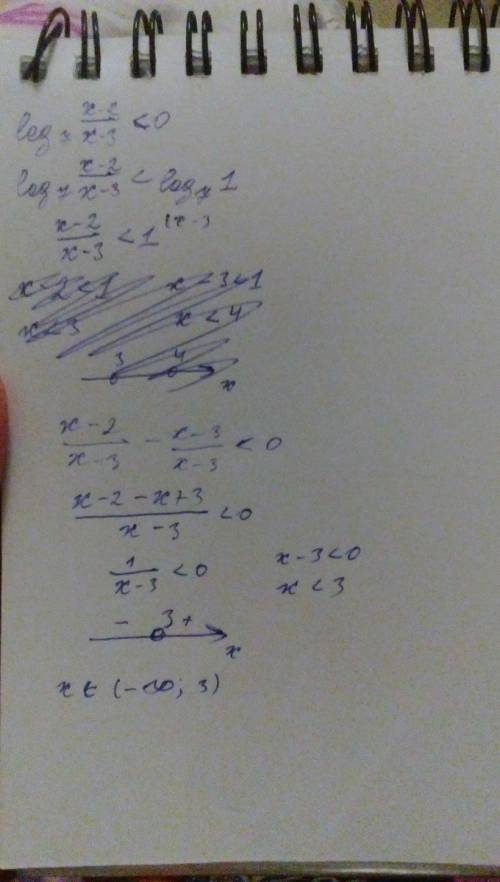 log₇ x-2/x-3 < 0
log₇ x-2/x-3 < log₇ 1
x-2/x-3 < 1 (x-3
x-2<1 x-3<1
x<3 x<4
3 4 x
x-2/x-3 - x-3/x-3 < 0
x-2-x+3/x-3 < 0
1/x-3 < 0 x-3<0
x<3
- 3 + x
x ∈ (-∞; 3)